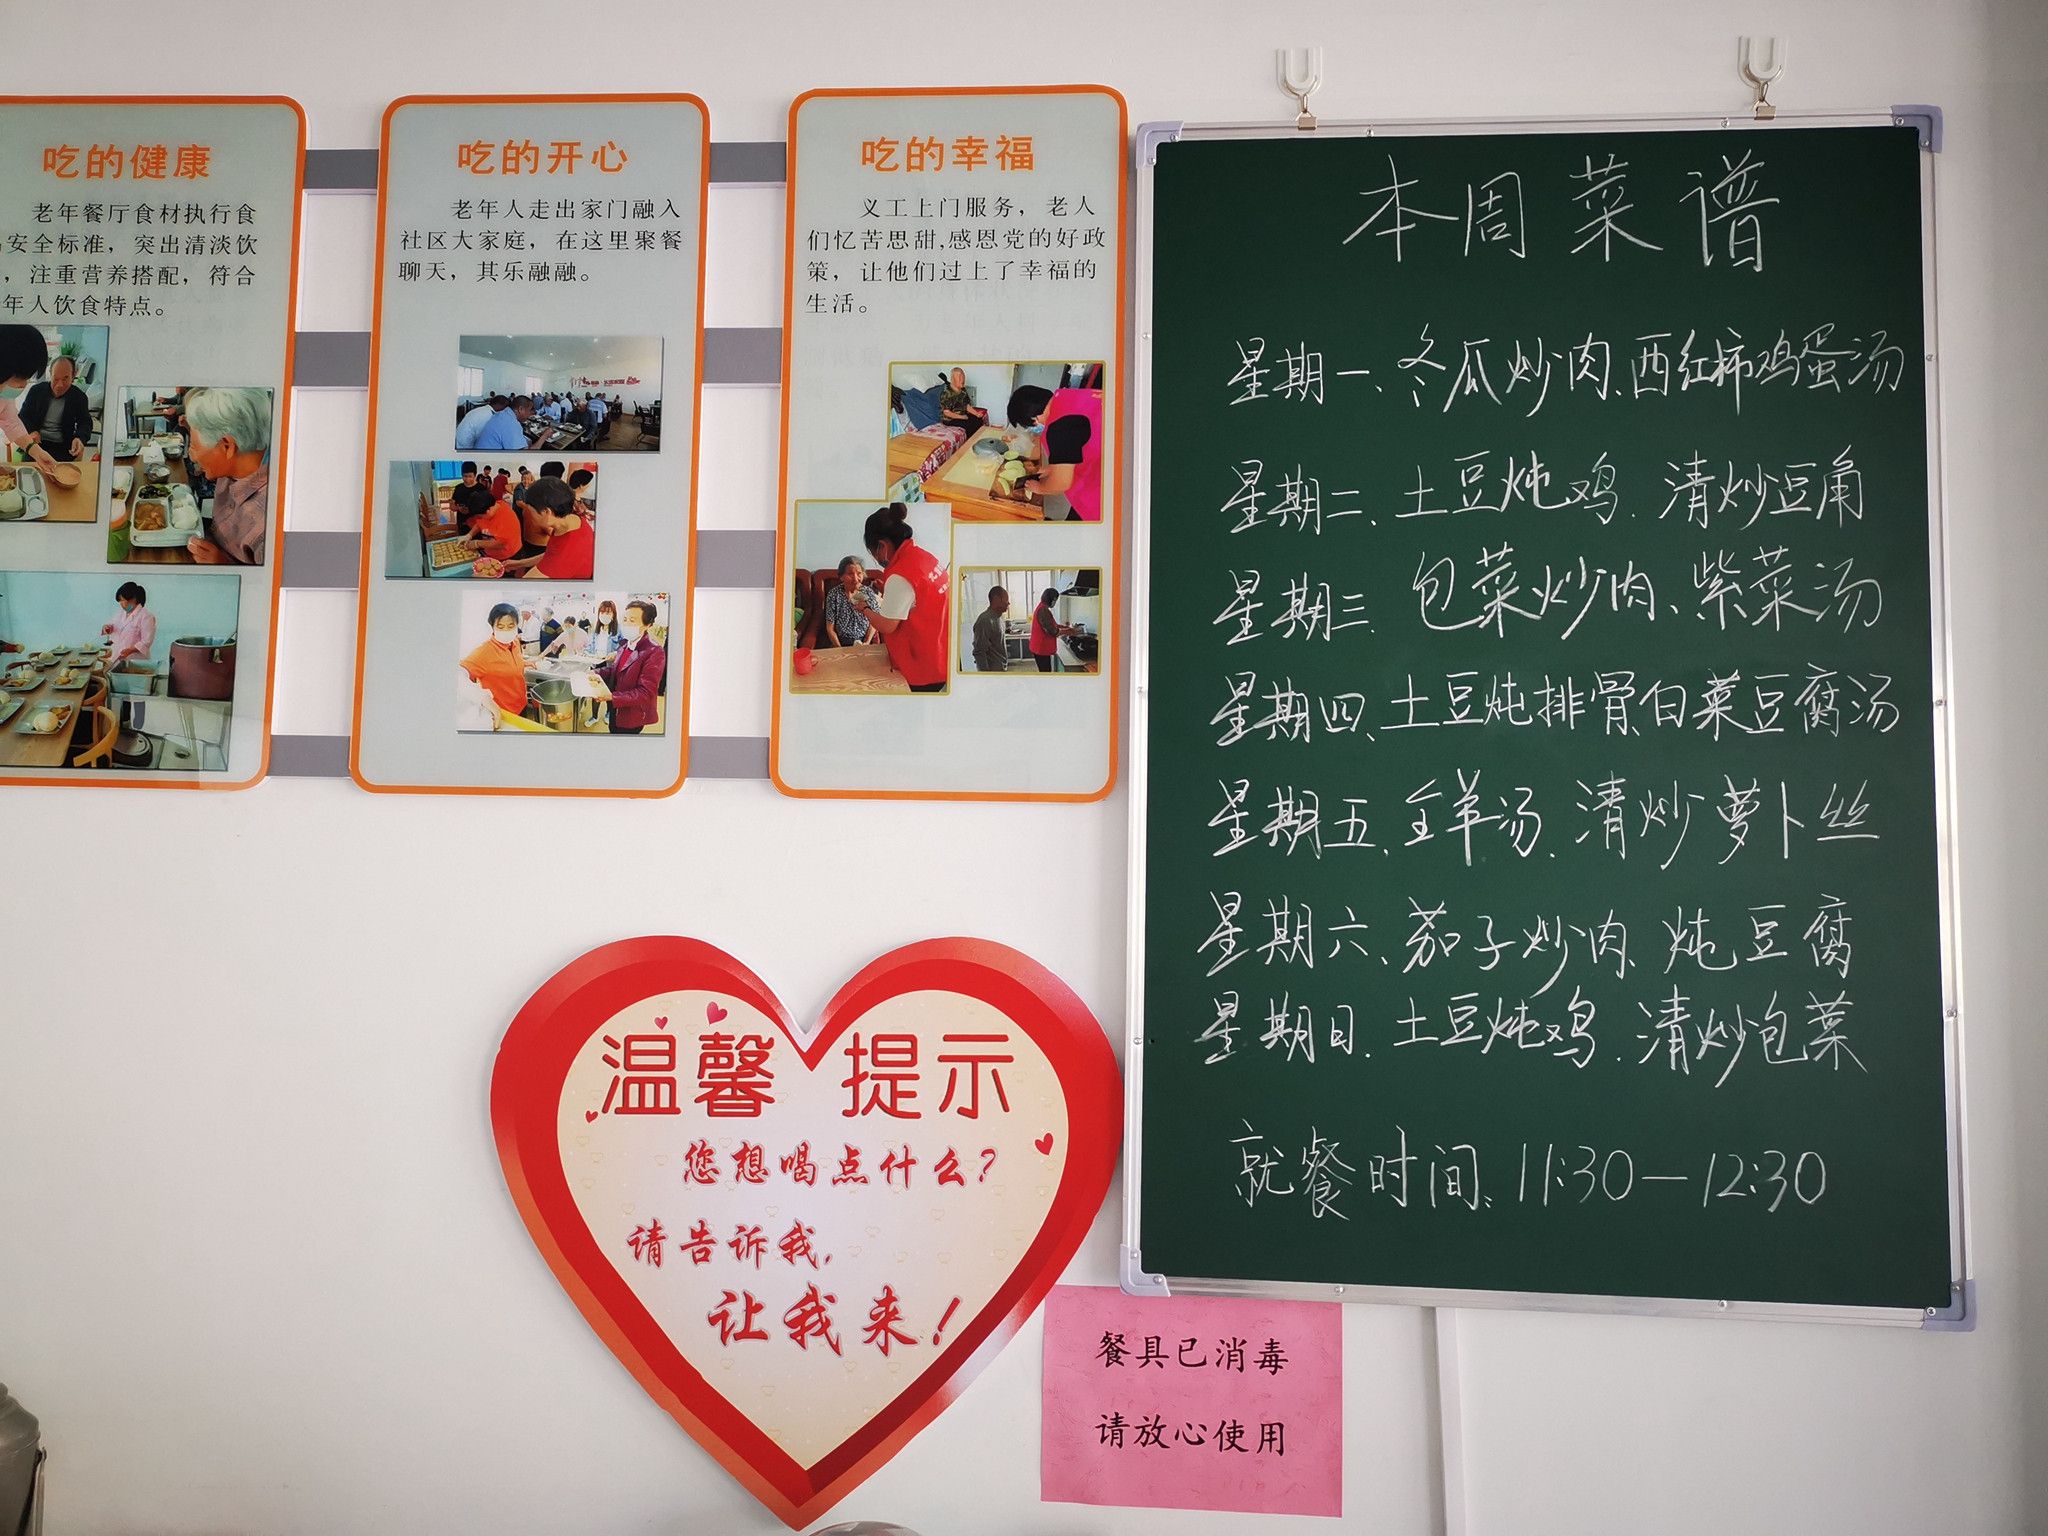 吃的健康
老年餐厅食材执行食
安全标准，突出清淡饮
，注重营养搭配，符合
年人饮食特点。
吃的开心
老年人走出家门融入
社区大家庭，在这里聚餐
聊天，其乐融融。
吃的幸福
义工上门服务，老人
们忆苦思甜,感恩党的好政
策，让他们过上了幸福的
生活。
本周菜谱
星期一、冬瓜炒肉、西红柿鸡蛋汤
星期二、土豆炖鸡、清炒豆角
星期三、包菜炒肉、紫菜汤
星期四、土豆炖排骨、白菜豆腐汤
星期五、全羊汤、清炒萝卜丝
星期六、茄子炒肉、炖豆腐
星期日、土豆炖鸡、清炒包菜
就餐时间：11:30—12:30
温馨提示
您想喝点什么？
请告诉我，
让我来！
餐具已消毒
请放心使用